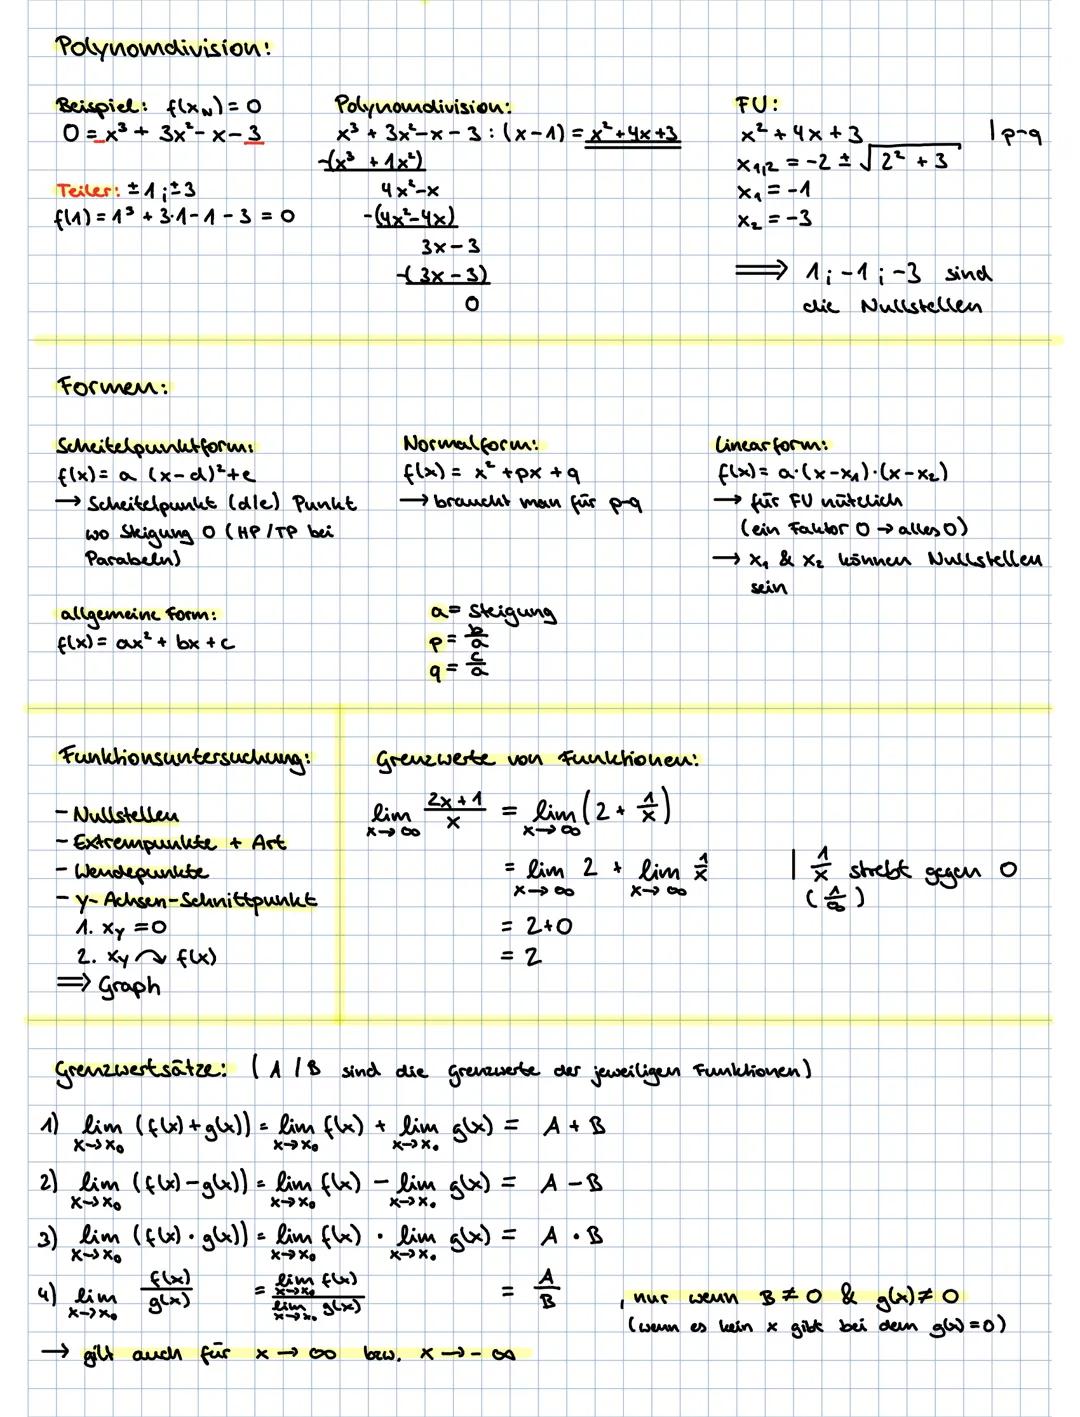 Polynomdivision:
Beispiel: f(x_N) = 0
0 = x³ + 3x² - x - 3
Teiler: ±1 ; ±3
f(1) = 1³ + 3·1 - 1 - 3 = 0
Polynomdivision:
x³ + 3x² - x - 3 : (x - 1) = x² + 4x + 3
-(x³ + 1x²)
4x² - x
-(4x² - 4x)
3x - 3
-(3x - 3)
0
FU:
x² + 4x + 3 | p-q
x₁,₂ = -2 ± √(2² + 3)
x₁ = -1
x₂ = -3
⟹ 1 ; -1 ; -3 sind
die Nullstellen
Formen:
Scheitelpunktform:
f(x) = a (x-d)² + e
→ Scheitelpunkt (d|e) Punkt
wo Steigung 0 (HP/TP bei
Parabeln)
Normalform:
f(x) = x² + px + q
→ braucht man für p-q
Linearform:
f(x) = a·(x-x₁)·(x-x₂)
→ für FU nützlich
(ein Faktor 0 → alles 0)
→ x₁ & x₂ können Nullstellen
sein
allgemeine Form:
f(x) = ax² + bx + c
a = Steigung
p = b/a
q = c/a
Funktionsuntersuchung:
- Nullstellen
- Extrempunkte + Art
- Wendepunkte
- y-Achsen-Schnittpunkt
1. x_y = 0
2. x_y ↷ f(x)
⟹ Graph
Grenzwerte von Funktionen:
lim x→∞ (2x+1)/x = lim x→∞ (2 + 1/x)
= lim x→∞ 2 + lim x→∞ 1/x | 1/x strebt gegen 0
(1/∞)
= 2+0
= 2
Grenzwertsätze: ( A / B sind die Grenzwerte der jeweiligen Funktionen)
1) lim x→x₀ (f(x) + g(x)) = lim x→x₀ f(x) + lim x→x₀ g(x) = A + B
2) lim x→x₀ (f(x) - g(x)) = lim x→x₀ f(x) - lim x→x₀ g(x) = A - B
3) lim x→x₀ (f(x) · g(x)) = lim x→x₀ f(x) · lim x→x₀ g(x) = A · B
4) lim x→x₀ f(x)/g(x) = lim x→x₀ f(x) / lim x→x₀ g(x) = A/B , nur wenn B ≠ 0 & g(x) ≠ 0
(wenn es kein x gibt bei dem g(x) = 0)
→ gilt auch für x → ∞ bzw. x → - ∞